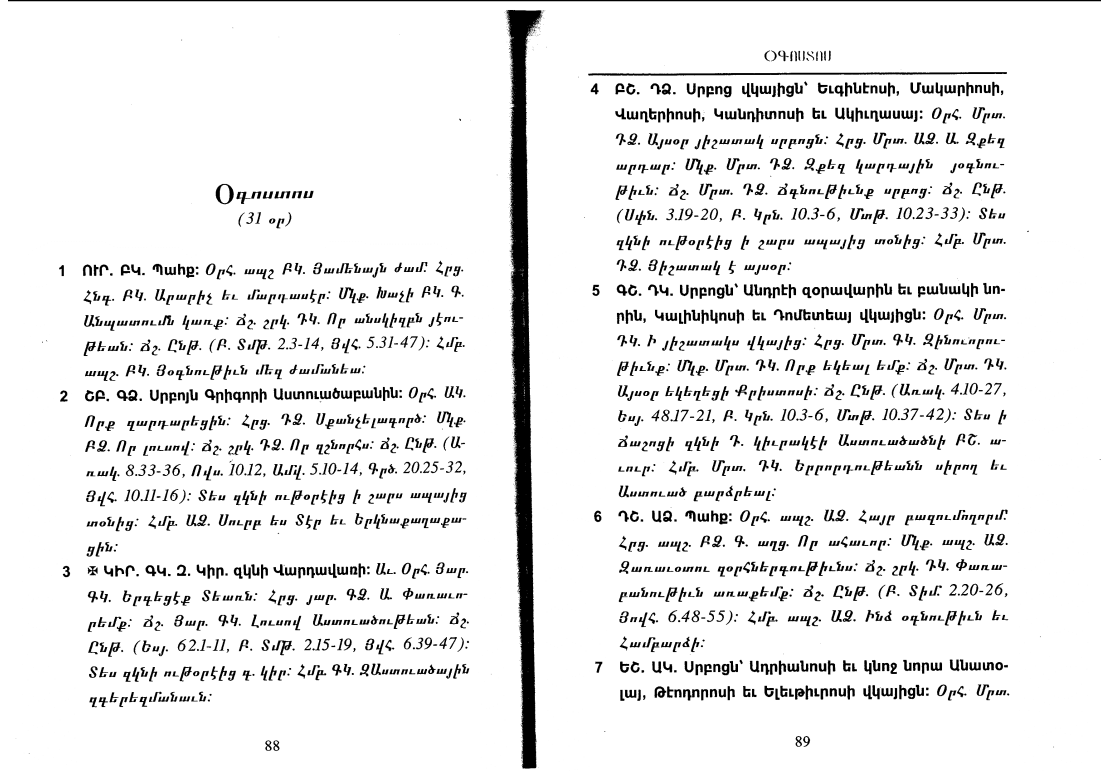 Օգոստոս
(31 օր)
1 ՈՒՐ. ԲԿ. Պահք: Օրհ. ապշ ԲԿ. Յամենայն ժամ: Հրց.
Հնգ. ԲԿ. Արարիչ եւ մարդասէր: Մկք. Խաչի ԲԿ. Գ.
Անպատումն կառք: Ճշ. շրկ. ԴԿ. Որ անսկիզբն յէու-
թեան: Ճշ. Ընթ. (Բ. Տմթ. 2.3-14, Յվհ. 5.31-47): Հմբ.
ապշ. ԲԿ. Յօգնութիւն մեզ ժամանեա:
2 ՇԲ. ԳՁ. Սրբոյն Գրիգորի Աստուածաբանին: Օրհ. ԱԿ.
Որք զարդարեցին: Հրց. ԴՁ. Սքանչելագործ: Մկք.
ԲՁ. Որ լուսով: Ճշ. շրկ. ԴՁ. Որ զշնորհս: Ճշ. Ընթ. (Ա-
ռակ. 8.33-36, Ովս. 10.12, Ամվ. 5.10-14, Գրծ. 20.25-32,
Յվհ. 10.11-16): Տես զկնի ութօրէից ի շարս ապայից
տօնից: Հմբ. ԱՁ. Սուրբ ես Տէր եւ երկնաքաղաքա-
ցին:
3 ✠ ԿԻՐ. ԳԿ. Զ. Կիր. զկնի Վարդավառի: Աւ. Օրհ. Յար.
ԳԿ. Երգեցէք Տեառն: Հրց. յար. ԳՁ. Ա. Փառաւո-
րեմք: Ճշ. Յար. ԳԿ. Լուսով Աստուածութեան: Ճշ.
Ընթ. (Եսյ. 62.1-11, Բ. Տմթ. 2.15-19, Յվհ. 6.39-47):
Տես զկնի ութօրէից գ. կիր: Հմբ. ԳԿ. ԶԱստուածային
զգերեզմանաւն:
88
ՕԳՈՍՏՈՍ
4 ԲՇ. ԴՁ. Սրբոց վկայիցն՝ Եւգինէոսի, Մակարիոսի,
Վաղերիոսի, Կանդիտոսի եւ Ակիւղասայ: Օրհ. Մրտ.
ԴՁ. Այսօր յիշատակ սրբոցն: Հրց. Մրտ. ԱՁ. Ա. Զքեզ
արդար: Մկք. Մրտ. ԴՁ. Զքեզ կարդային յօգնու-
թիւն: Ճշ. Մրտ. ԴՁ. Ճգնութիւնք սրբոց: Ճշ. Ընթ.
(Սփն. 3.19-20, Բ. Կրն. 10.3-6, Մտթ. 10.23-33): Տես
զկնի ութօրէից ի շարս ապայից տօնից: Հմբ. Մրտ.
ԴՁ. Յիշատակ է այսօր:
5 ԳՇ. ԴԿ. Սրբոցն՝ Անդրէի զօրավարին եւ բանակի նո-
րին, Կալինիկոսի եւ Դոմետեայ վկայիցն: Օրհ. Մրտ.
ԴԿ. Ի յիշատակս վկայից: Հրց. Մրտ. ԳԿ. Զինուորու-
թիւնք: Մկք. Մրտ. ԴԿ. Որք եկեալ եմք: Ճշ. Մրտ. ԴԿ.
Այսօր եկեղեցի Քրիստոսի: Ճշ. Ընթ. (Առակ. 4.10-27,
Եսյ. 48.17-21, Բ. Կրն. 10.3-6, Մտթ. 10.37-42): Տես ի
Ճաշոցի զկնի Դ. կիւրակէի Աստուածածնի ԲՇ. ա-
ւուր: Հմբ. Մրտ. ԴԿ. Երրորդութեանն սիրող եւ
Աստուած բարձրեալ:
6 ԴՇ. ԱՁ. Պահք: Օրհ. ապշ. ԱՁ. Հայր բազումողորմ:
Հրց. ապշ. ԲՁ. Գ. աղց. Որ ահաւոր: Մկք. ապշ. ԱՁ.
Զառաւօտու զօրհներգութիւնս: Ճշ. շրկ. ԴԿ. Փառա-
բանութիւն առաքեմք: Ճշ. Ընթ. (Բ. Տիմ. 2.20-26,
Յովհ. 6.48-55): Հմբ. ապշ. ԱՁ. Ինձ օգնութիւն եւ
Համբարձի:
7 ԵՇ. ԱԿ. Սրբոցն՝ Ադրիանոսի եւ կնոջ նորա Անատօ-
լայ, Թէոդորոսի եւ Ելեւթիւրոսի վկայիցն: Օրհ. Մրտ.
89